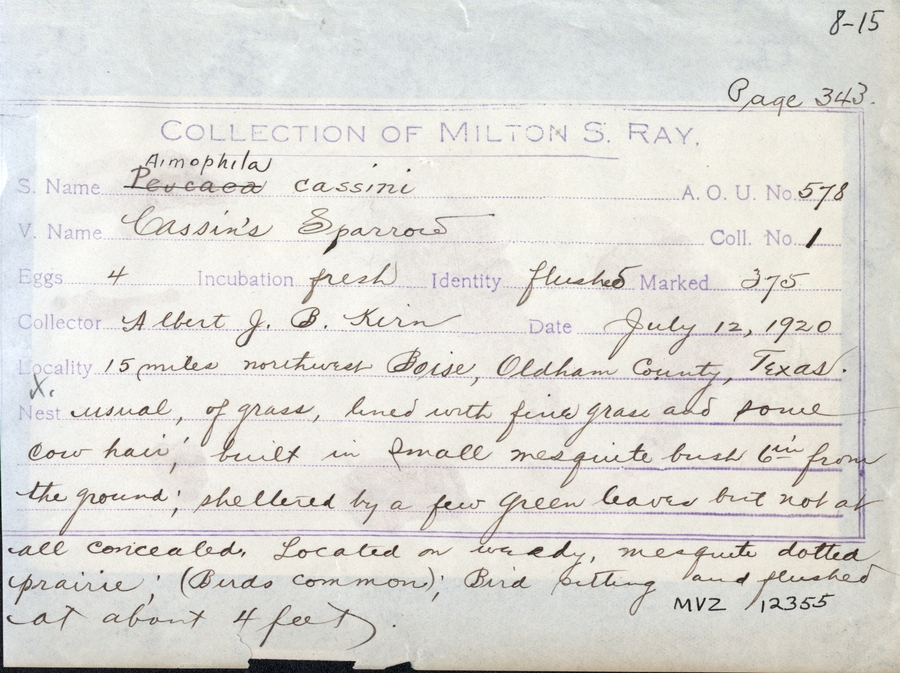 8-15
Page 343.
COLLECTION OF MILTON S. RAY.
Aimophila
S. Name Peucaea cassini A. O. U. No. 578
V. Name Cassin's Sparrow Coll. No. 1
Eggs 4 Incubation fresh Identity flushed Marked 375
Collector Albert J. B. Kirn Date July 12, 1920
Locality 15 miles northwest Boise, Oldham County, Texas.
X.
Nest usual, of grass, lined with fine grass and some
cow hair; built in small mesquite bush 6 in from
the ground; sheltered by a few green leaves but not at
all concealed. Located on weedy, mesquite dotted
prairie; (Birds common); Bird sitting and flushed
at about 4 feet).
MVZ 12355